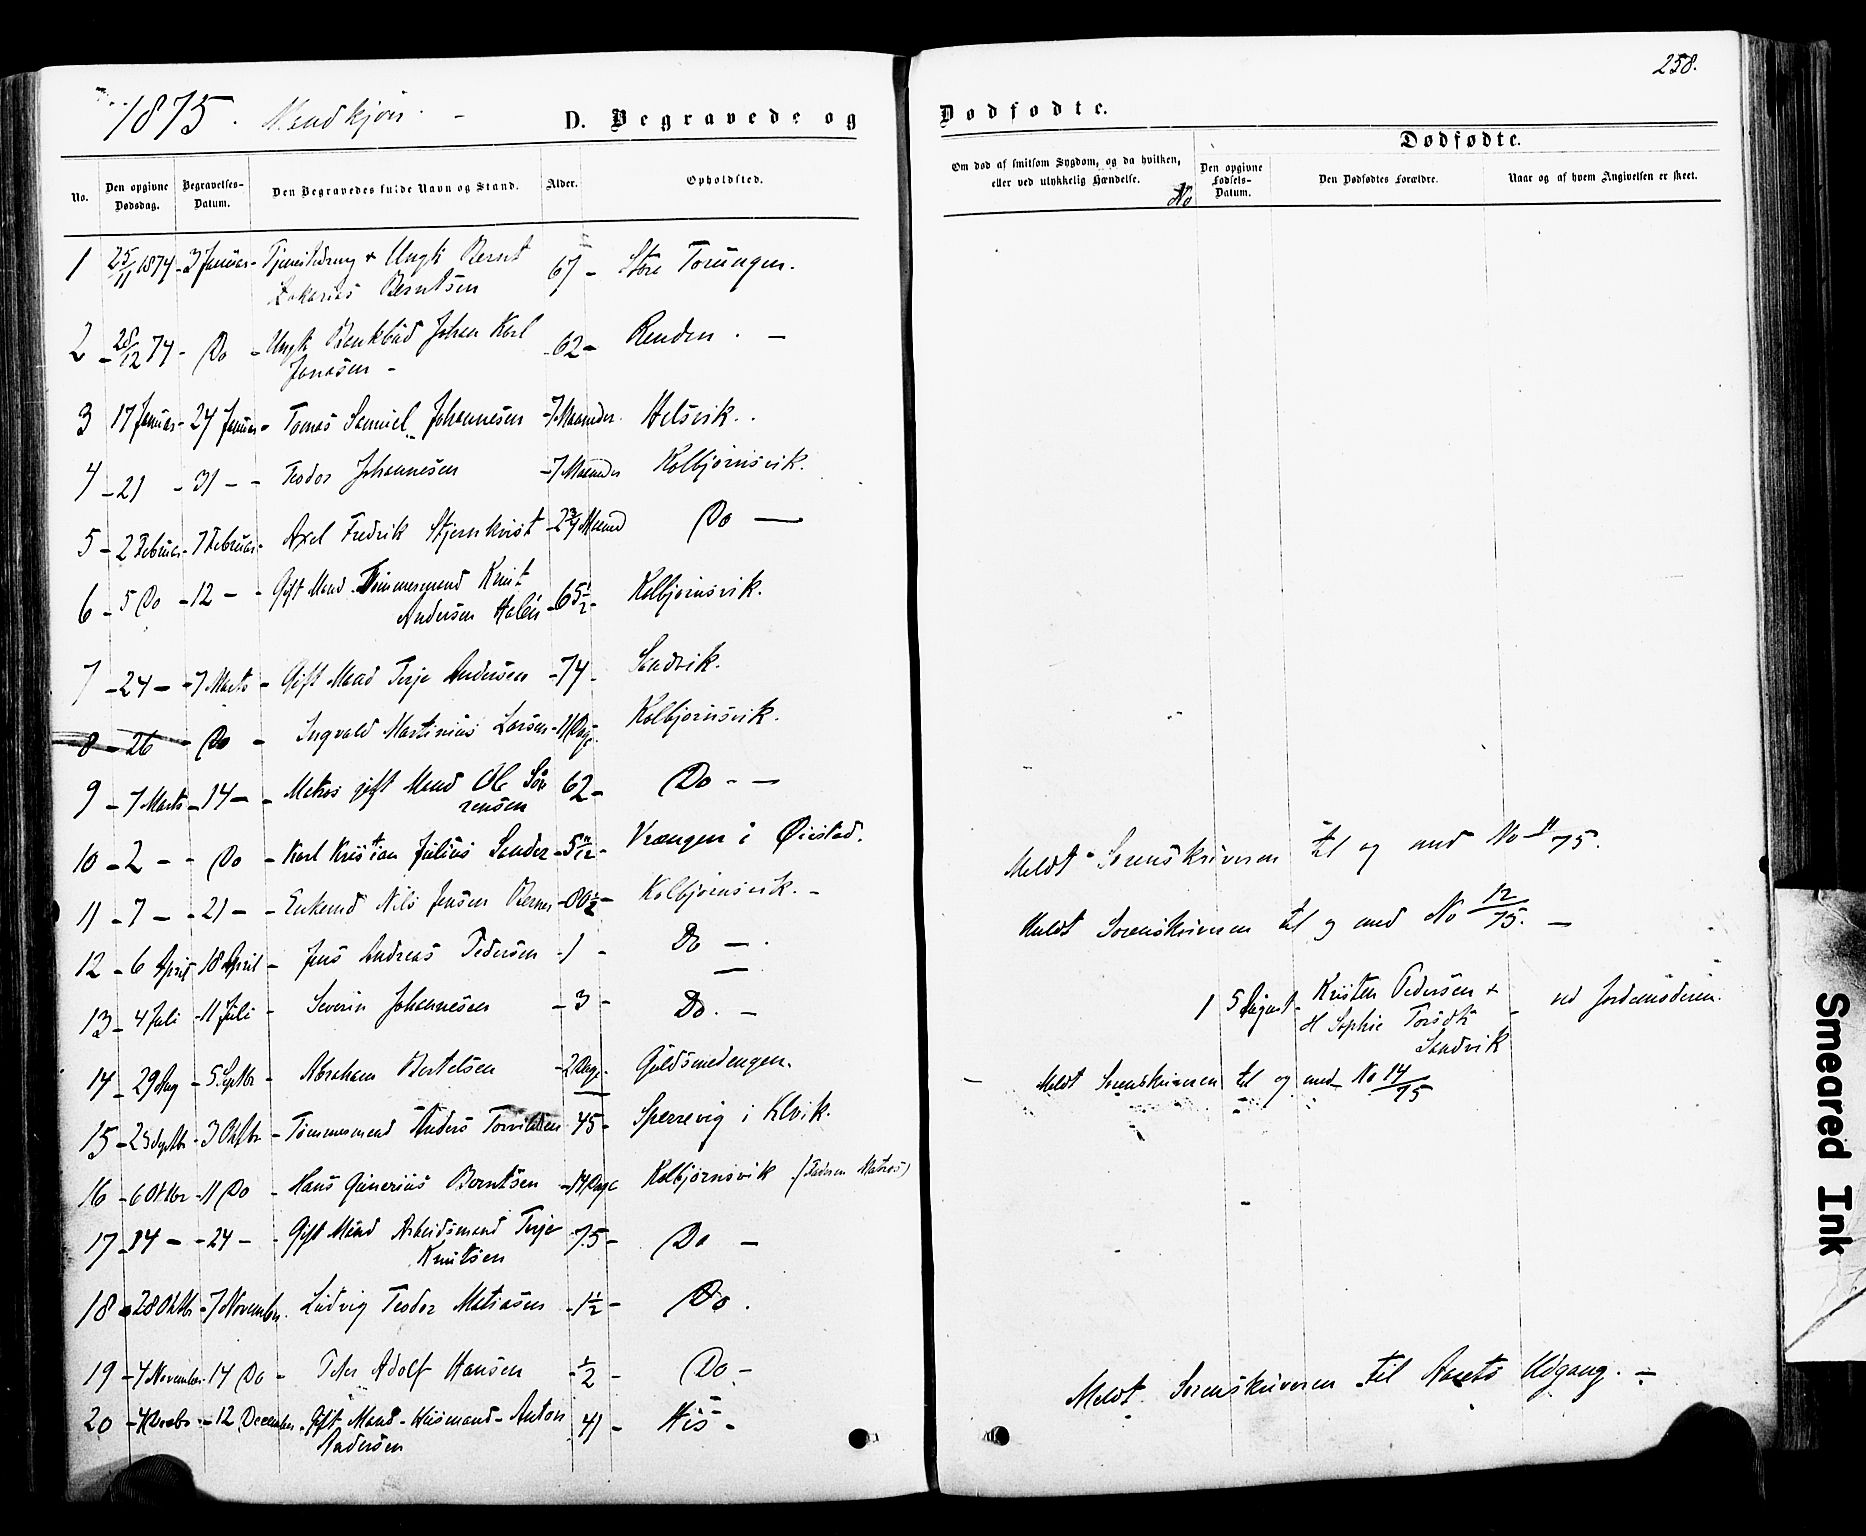 258.
1875. Mandkjøn.
D. Begravede og Dødfødte.
No. Den opgivne Dødsdag. Begravelses-Datum. Den Begravedes fulde Navn og Stand. Alder. Opholdssted.
Om død af smitsom Sygdom, og da hvilken, eller ved ulykkelig Hændelse. No Den opgivne Fødsels-Datum. Dødfødte. Den Dødfødtes Forældre. Naar og af hvem Angivelsen er skeet.
1 25/11 1874 - 3 Januar - Ungk Bernt 67 - Store Torungen.
Zakarias Berntsen
2 - 28/12 74 - Do - Ungk Johan Karl - 62 - Renden. -
Jonasen -
3 17 Januar - 24 Januar - Tomas Samuel Johannesen - 7 Maaneder. Helsvik.
4 - 21 - 31 - - Teodor Johannesen - 7 Maaneder Kolbjørnsvik.
5 - 2 Februar - 7 Februar - Axel Fredrik Stjernkvist - 2 3/4 Maaned Do -
6 - 5 Do - 12 - - Gift Mand Tømmermand Knut
Andersen - 65 1/2 - Kolbjørnsvik.
7 - 24 - - 7 Marts - Gift Mand Terje Andersen - 74 - Sandvik.
8 - 26 - Do - Ingvald Martinius Larsen - 11 Dage. Kolbjørnsvik.
9 - 7 Marts - 14 - - Matros gift Mand Ole Søv 62 - Do - -
rensen
10 - 2 - - Do - Karl Kristian Julius Sander - 5 11/12 - Vrængen i Øiestad.
11 - 7 - - 21 - - Enkemd Nils Jensen Kolbjørnsvik. -
Meldt Sorenskriveren til og med No 11/75.
12 - 6 April - 18 April - Jens Andreas Pedersen - 1 - Do - .
Meldt Sorenskriveren til og med No 12/75. -
13 - 4 Juli - 11 Juli - Severin Johannesen - 3 - Do. -
1 5 August - Kristen Pedersen + - ved Jordemoderen.
H Sophie Torsdtr
Sandvik
14 - 29 Aug - 5 Septbr - Abraham Bertelsen - 2 Dage. Guldsmedengen.
- Meldt Sorenskriveren til og med No 14/75
15 - 23 Septbr - 3 Oktbr - Tømmermand Anders Torvildsen 45 - Sperrevig i Klvik.
16 - 6 Oktbr - 11 Do - Hans Gunerius Berntsen - 14 Dage Kolbjørnsvik (Faderen Matros)
17 - 14 - - 24 - - Gift Mand Arbeidsmand Terje 75 - Do -
Knutsen
18 - 28 Oktbr - 7 November. Ludvig Teodor Matiasen - 1 1/2 - Do.
19 - 4 November - 14 Do - Peter Adolf Hansen - 1/2 - Do -
20 - 4 Decbr - 12 December. Gift Mand - Husmand - Anton 41 - His -
Andersen
Meldt Sorenskriveren til Aarets Udgang. -
Smeared Ink